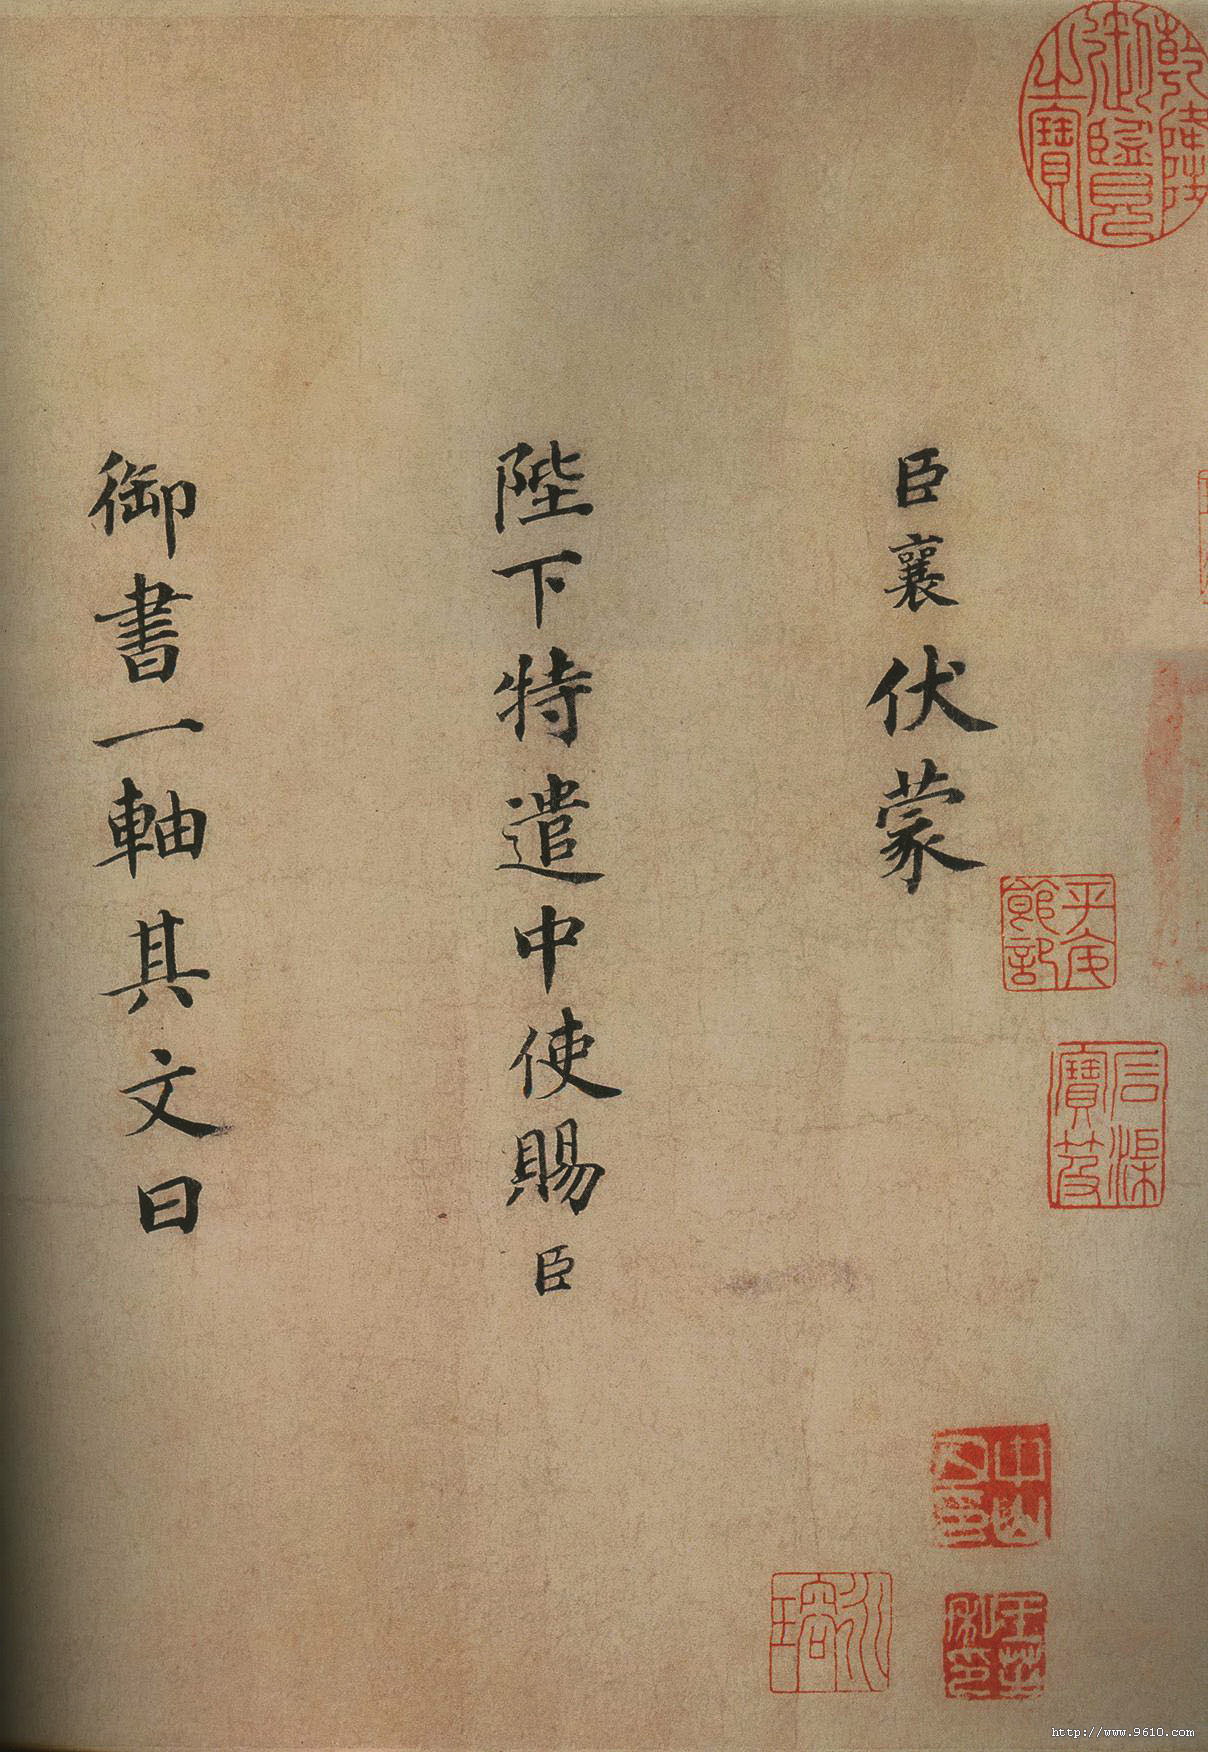 臣襄伏蒙
陛下特遣中使賜臣
御書一軸其文曰
乾隆御覽之寶
石渠寶笈
http://www.9610.com